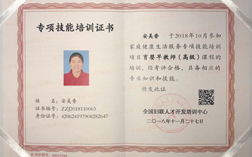 专项技能培训证书
姓名：安美香
证书编号：ZZJ2018110063
身份证号：
安美香 于2018年10月参加
家庭健康生活服务专项技能培训
项目育婴早教师（高级）课程的
培训，经考评合格，具备相应的
专业知识和技能。
特发此证
全国妇联人才开发培训中心
二〇一八年十一月二十七日